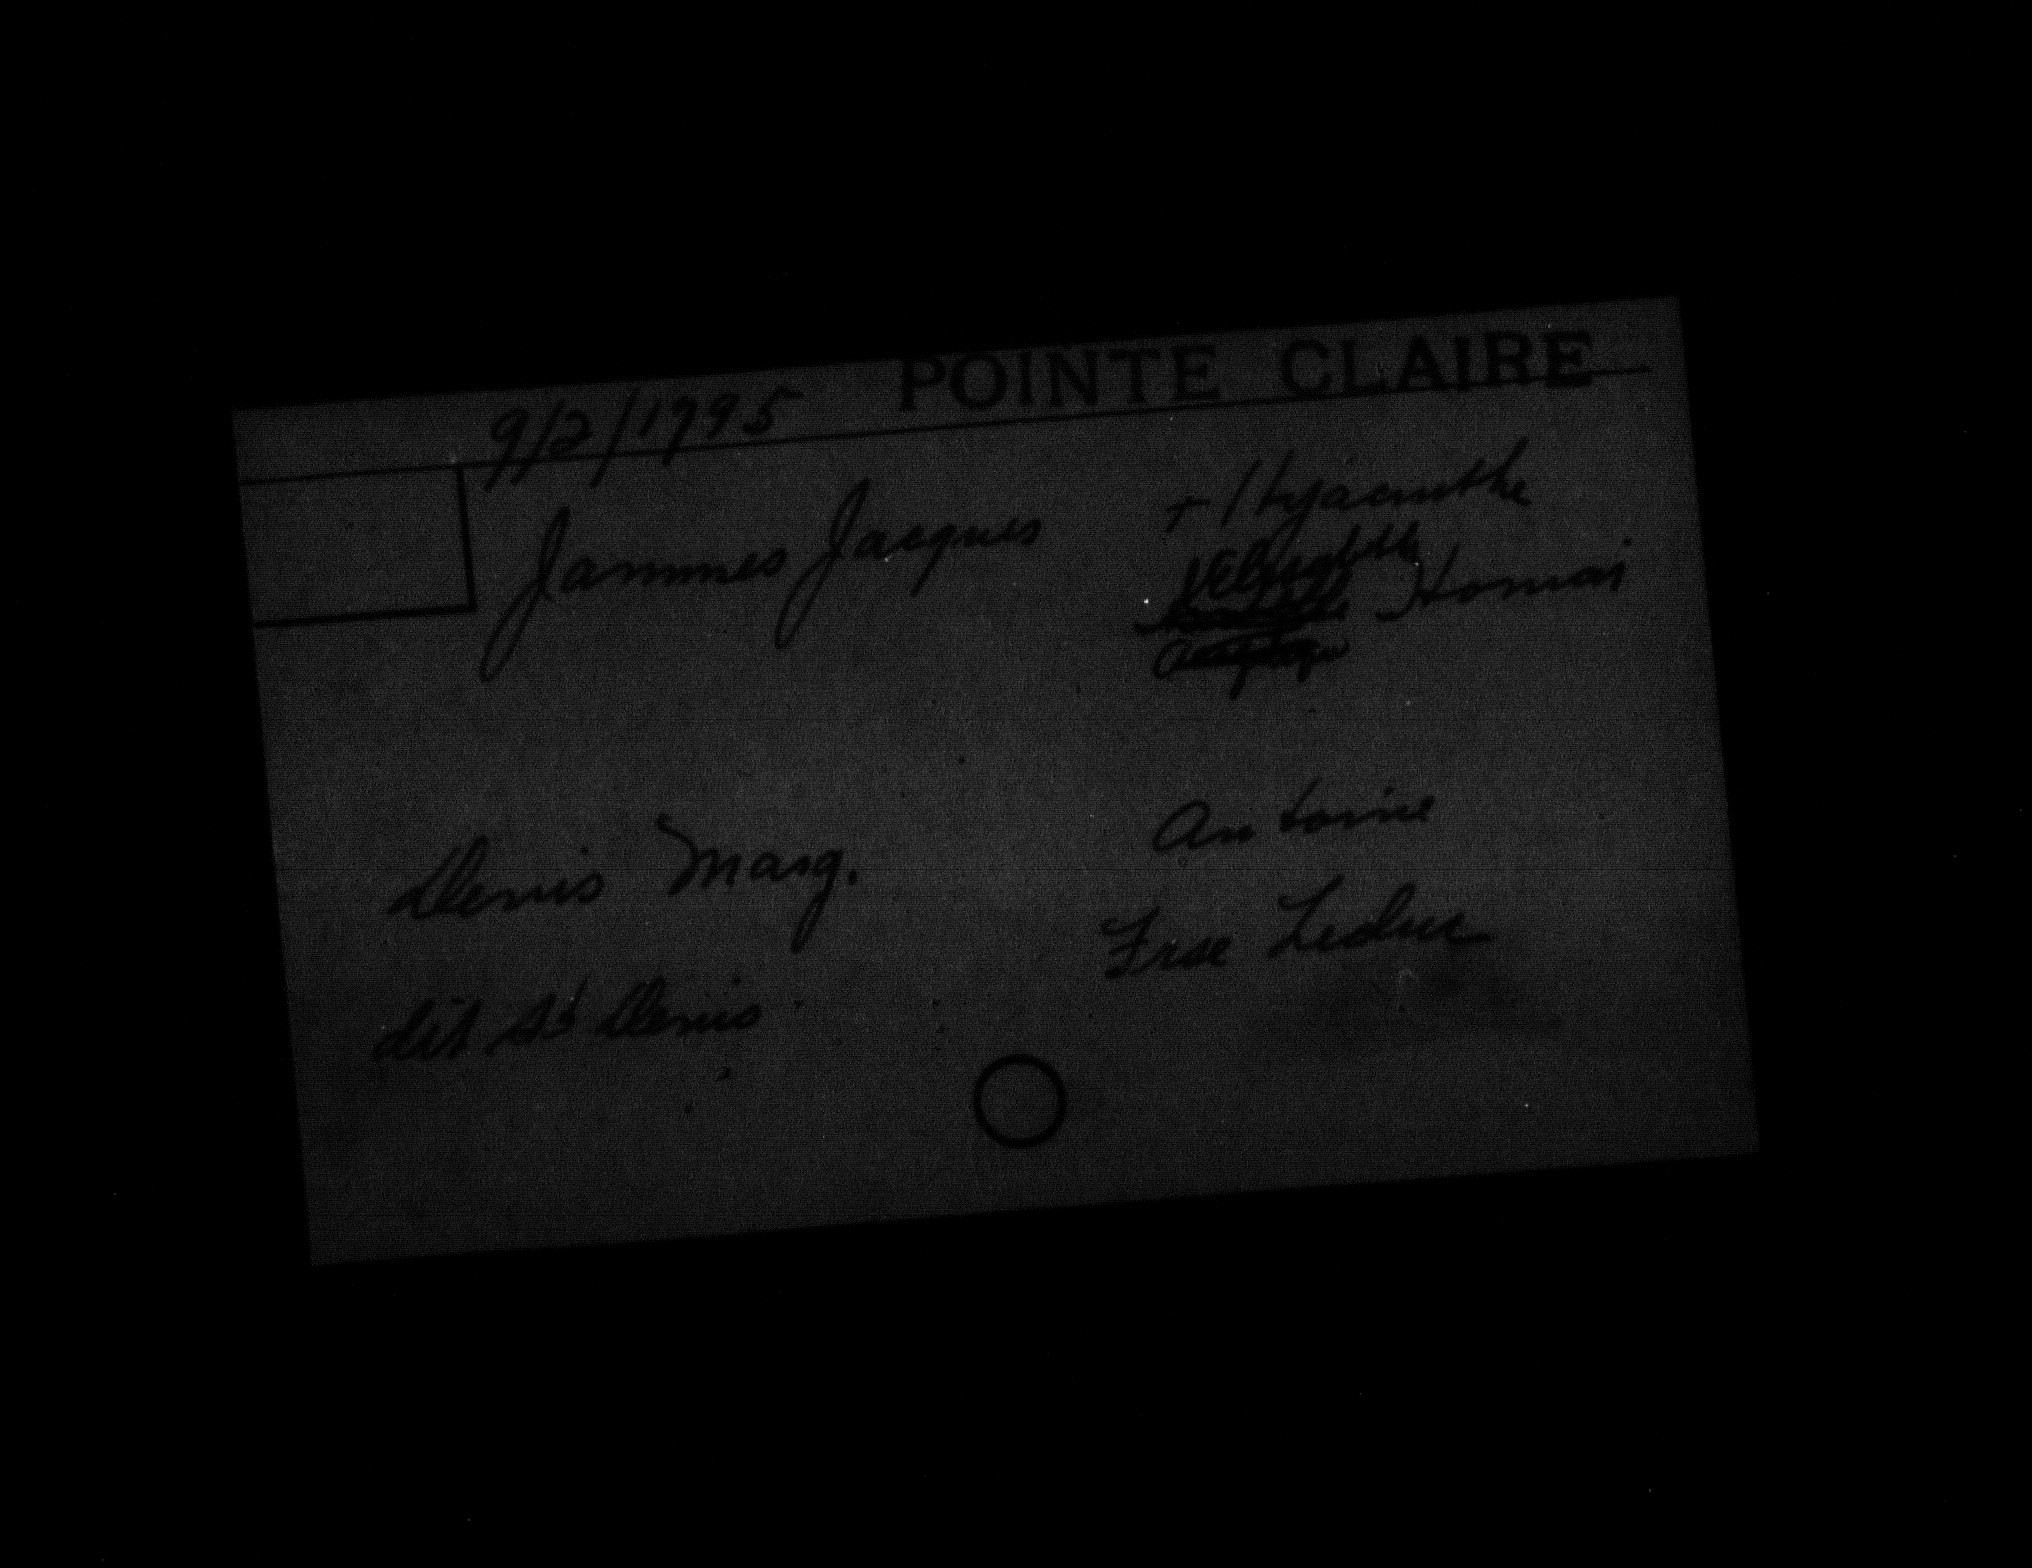 POINTE CLAIRE
9/2/1795
Jammes Jacques + Hyacinthe
Elizabeth Homai
Denis Marg. Antoine
Frse Leduc
dit St Denis